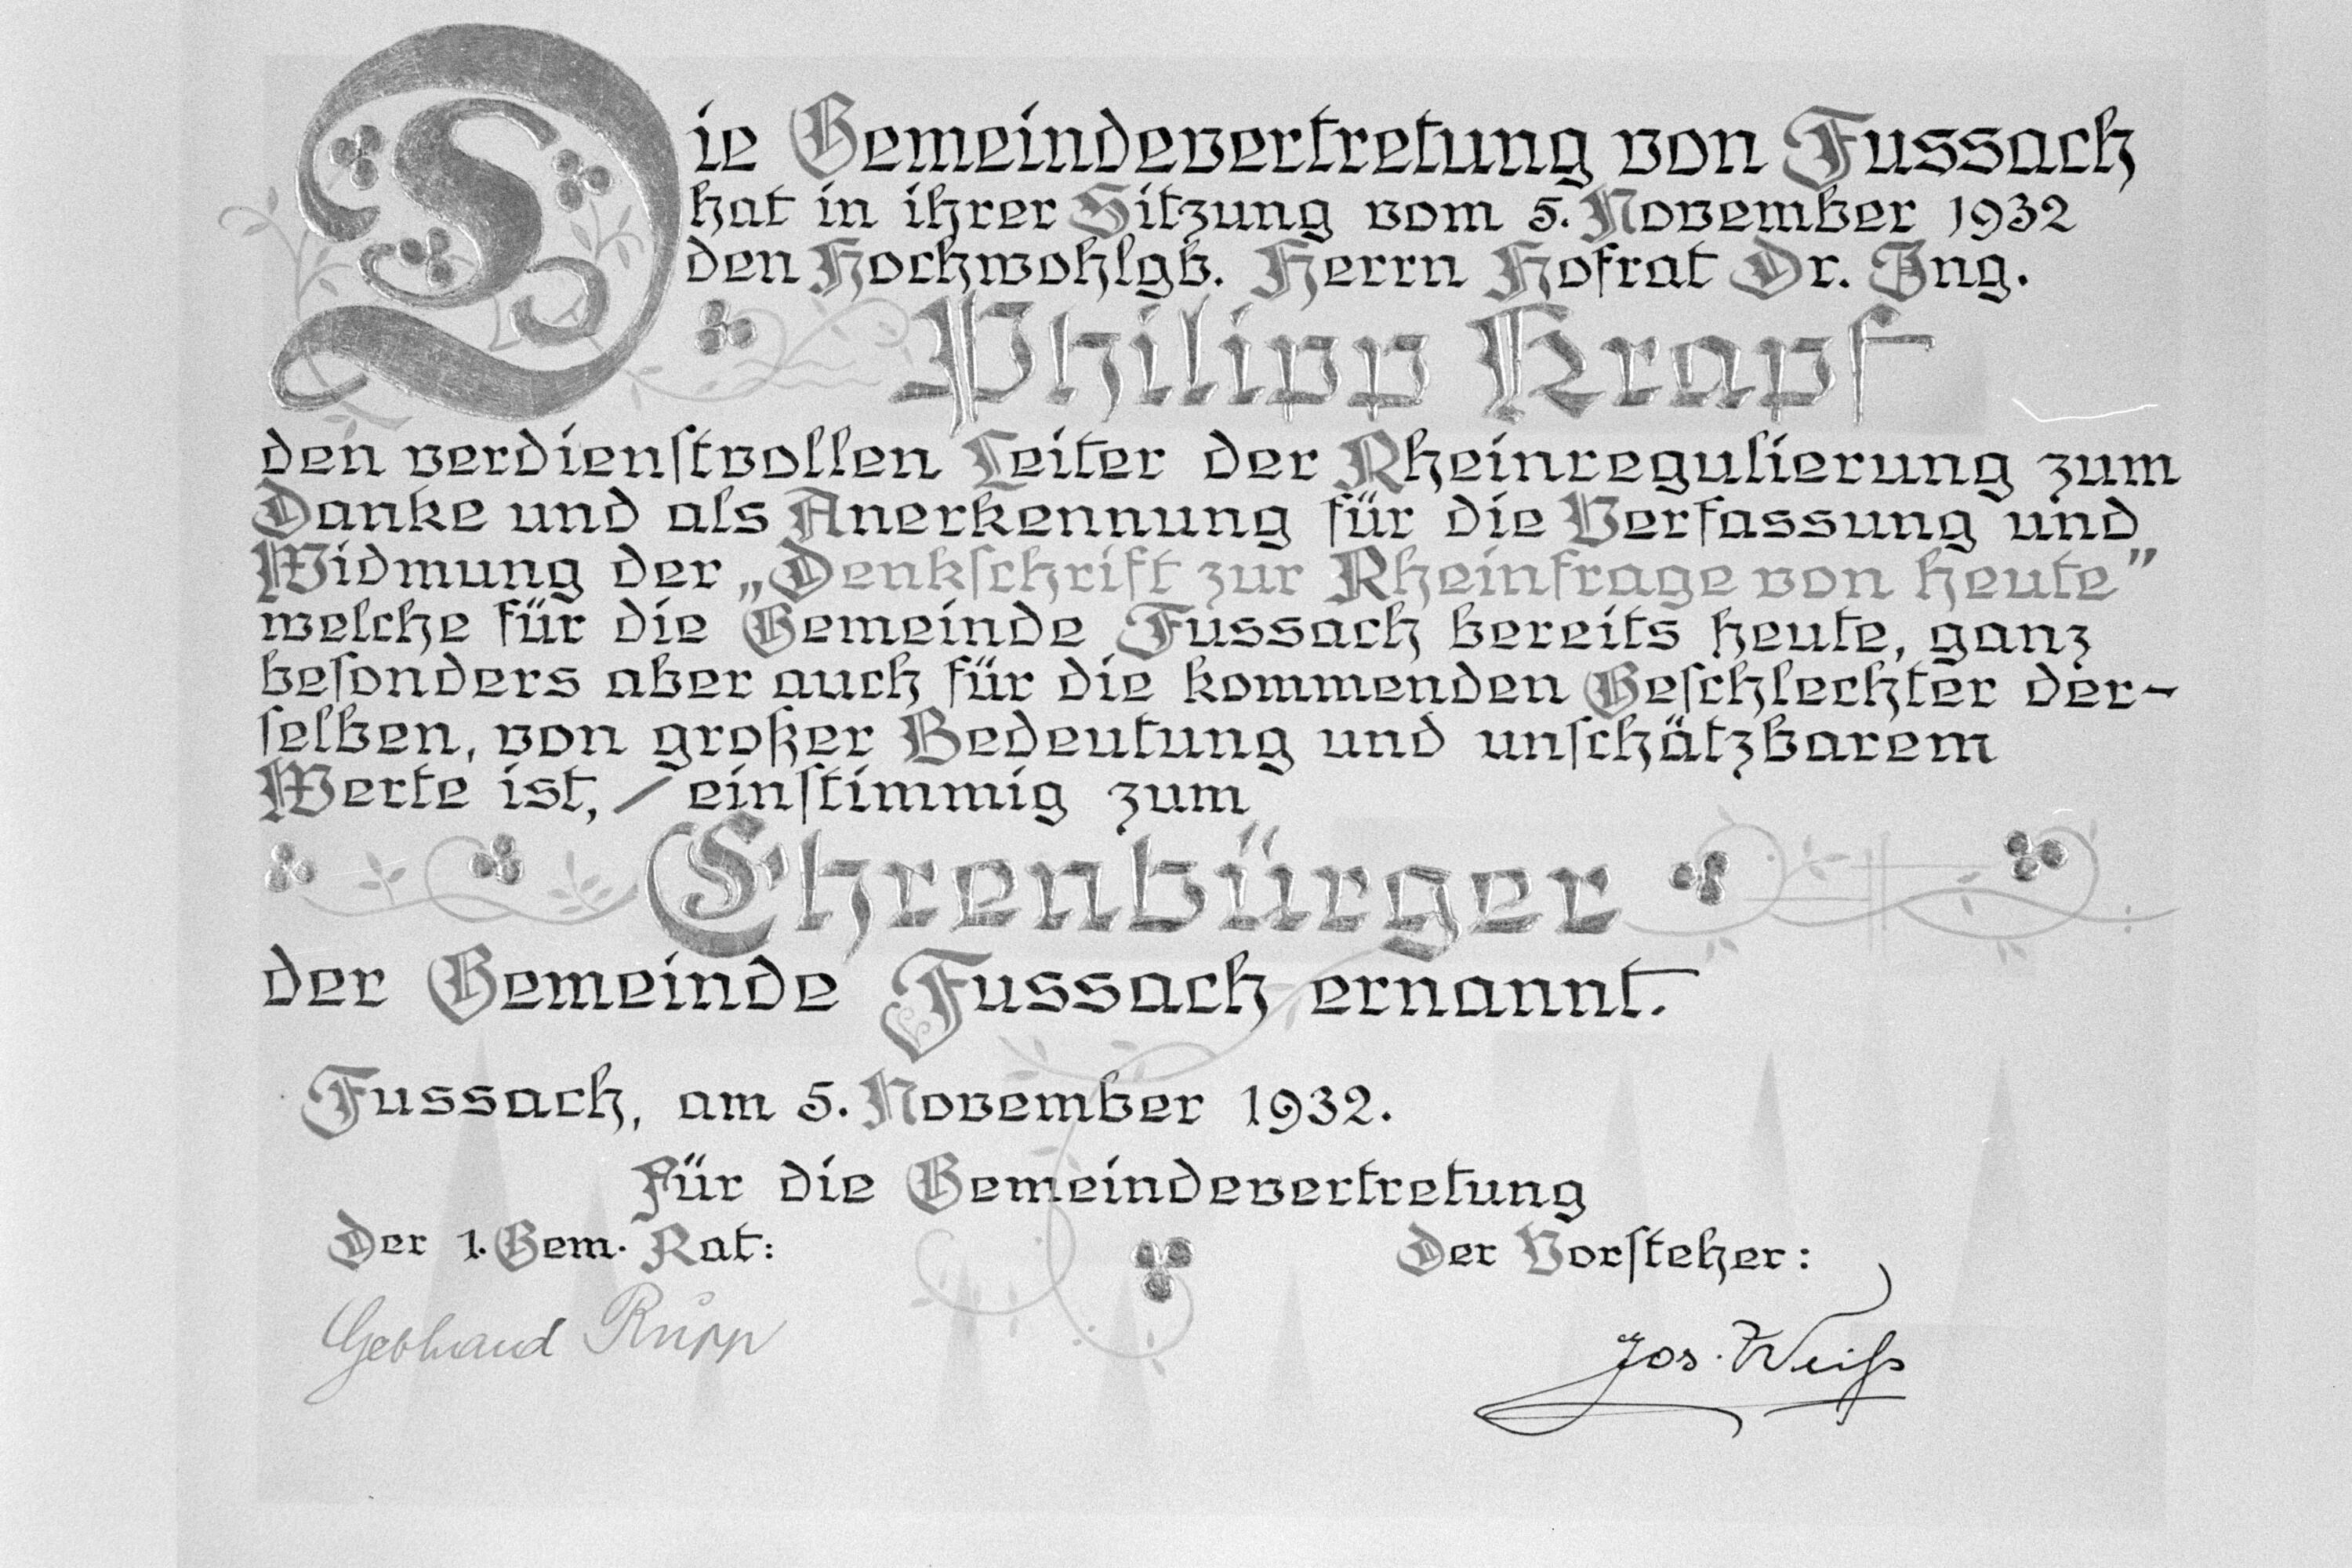 Die Gemeindevertretung von Fussach
hat in ihrer Sitzung vom 5. November 1932
den Hochwohlgb. Herrn Hofrat Dr. Ing.
Philipp Krapf
den verdienstvollen Leiter der Rheinregulierung zum
Danke und als Anerkennung für die Verfassung und
Widmung der „Denkschrift zur Rheinfrage von heute”
welche für die Gemeinde Fussach bereits heute, ganz
besonders aber auch für die kommenden Geschlechter der-
selben, von großer Bedeutung und unschätzbarem
Werte ist, / einstimmig zum
Ehrenbürger
der Gemeinde Fussach ernannt.
Fussach, am 5. November 1932.
Für die Gemeindevertretung
Der 1. Gem. Rat:
Der Vorsteher:
Gebhard Rupp
Jos. Weiß